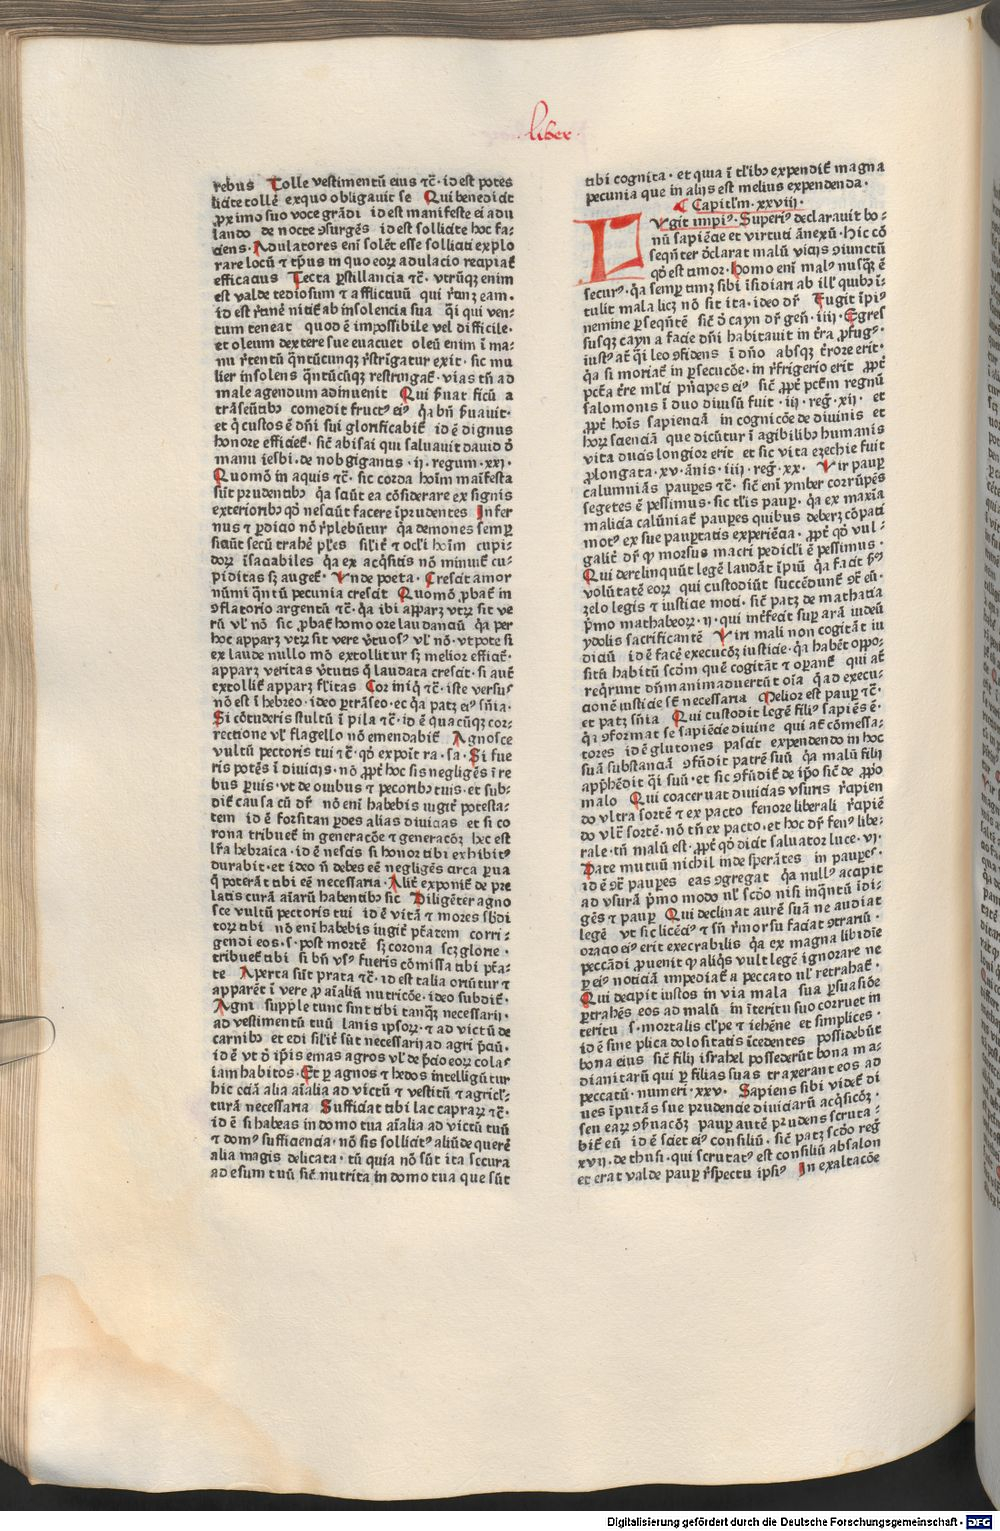 liber
rebus Tolle vestimentū eius ⁊c̄· id est potes
licite tolle᷑ exquo obligauit se Qui benedicit
ꝓximo suo voce grādi id est manifeste ei adu
lando de nocte ꝯsurgēs id est sollicite hoc fa⸗
ciens· Adulatores eni᷑ sole᷑t esse solliciti explo
rare locū ⁊ tp̄us in quo eoꝝ adulacio recipiat᷑
efficacius Tecta ꝑstillancia ⁊c̄· vtrūqꝫ enim
est valde tediosum ⁊ afflictiuū qui r᷑tinꝫ eam·
id est r᷑tine᷑ nitit᷑ ab insolencia sua q̄i qui ven⸗
tum teneat quod ē impossibile vel difficile·
et oleum dextere sue euacuet oleū enim ī ma⸗
nu r᷑tentū q̄ntūcunqꝫ r᷑strīgatur exit· sic mu
lier insolens q̄ntūcūqꝫ restringat᷑· vias tn̄ ad
male agendum adinuenit Qui ẜuat ficū a
trāseūtibꝰ comedit fructꝰ eiꝰ q̄a bn̄ ẜuauit·
et q̄ custos ē dn̄i sui glorificabit᷑ id ē dignus
honore efficiet᷑· sic᷑ abisai qui saluauit dauid ō
manu iesbi· de nob gigantis ·ij· regum ·xxj·
Quomō in aquis ⁊c̄· sic corda hoīm maīfesta
sūt prudentibꝰ q̄a sciūt ea cōsiderare ex signis
exterioribꝰ qō nesciūt facere īprudentes Infer
nus ⁊ ꝑdicio nō r᷑plebūtur q̄a demones semꝑ
siciūt secū trahē pl᷑es sil᷑it᷑ ⁊ ocl᷑i hoīm cupi⸗
doꝝ īsaciabiles q̄a ex acq̄sitis nō minuit᷑ cu⸗
piditas sꝫ auget᷑· Vnde poeta· Crescit amor
nūmi q̄ntū pecunia crescit Quomō ꝓbat᷑ in
ꝯflatorio argentū ⁊c̄· q̄a ibi apparꝫ vtꝝ sit ve
rū vl᷑ nō sic ꝓbat᷑ homo ore laudanciū q̄a per
hoc apparꝫ vtꝝ sit vere v᷑tuosꝰ vl᷑ nō· vtpote si
ex laude nullo mō extollitur sꝫ melior efficit᷑·
apparꝫ veritas v᷑tutis q̄ laudata crescit· si aut᷑
extollit᷑ apparꝫ fl᷑itas Cor iniq̄ ⁊c̄· iste versꝰ
nō est ī hebreo· ideo ꝑtrāseo· ec q̄a patꝫ eiꝰ sn̄ia·
Si cōtuderis stultū ī pila ⁊c̄· id ē quacūqꝫ cor⸗
rectione vl᷑ flagello nō emendabit᷑ Agnosce
vultū pectoris tui ⁊c̄· qō expoīt ra· sa· Si fue
ris potēs ī diuicijs· nō ꝓpt᷑ hoc sis negligēs ī re
bus ꝑuis· vt de ouibus ⁊ pecoribꝰ tuis· et sub⸗
dit᷑ causa cū dr᷑ nō eni᷑ habebis iugit᷑ potesta⸗
tem id ē forsitan ꝑdes alias diuicias et si co
rona tribuet᷑ in generacōe ⁊ generacōꝫ hec est
lr᷑a hebraica· id ē nescis si honor tibi exhibitꝰ
durabit· et ideo nō debes eē negligēs circa ꝑua
q̄ poterāt tibi eē necessaria· Alit᷑ exponit᷑ de pre
latis curā aīarū habentibꝰ sic Diligēter agno
sce vultū pectoris tui id ē vitā ⁊ mores sb̄di
toꝝ tibi nō eni᷑ habebis iugit᷑ pt̄atem corri⸗
gendi eos· s· post mortē sꝫ corona scꝫ glorie·
tribuet᷑ tibi si bn̄ vsꝰ fueris cōmissa tibi pt̄a⸗
te Aperta sūt prata ⁊c̄· id est talia oriūtur ⁊
apparēt ī vere ꝓ aīaliū nutricōe· ideo subdit᷑·
Agni supple tunc sint tibi tanqꝫ necessarij·
ad vestimentū tuū lanis ipsoꝝ· ⁊ ad victū de
carnibꝰ et edi sil᷑it᷑ sūt necessarij ad agri p̄ciū·
id ē vt ō ip̄is emas agros vl᷑ de p̄cio eoꝝ colas
iam habitos· Et ꝑ agnos ⁊ hedos intelligūtur
hic cūcta alia aīalia ad victū ⁊ vestitū ⁊ agricl᷑⸗
turā necessaria Sufficiat tibi lac capraꝝ ⁊c̄·
id ē si habeas in domo tua aīalia ad victū tuū
⁊ domꝰ sufficiencia· nō sis sollicitꝰ aliūde querē
alia magis delicata· tū quia nō sūt ita secura
ad esum tuū sic᷑ nutrita in domo tua que sūt
tibi cognita· et quia ī tl᷑ibꝰ expendit᷑ magna
pecunia que in alijs est melius expendenda·
Capitl᷑m· xxviij·
Vgit impiꝰ· Superiꝰ declarauit bo⸗
nū sapiēcie et virtuti ānexū· hic cō
seqn̄ter ōclarat malū vicijs ꝯiunctū
qō est timor· Homo eni᷑ malꝰ nusq̄ꝫ ē
securꝰ· q̄a semꝑ timꝫ sibi īsidiari ab ill᷑ quibꝰ ī⸗
tulit mala licꝫ nō sit ita· ideo dr᷑ Fugit īpiꝰ
nemine ꝑseqn̄te sic᷑ ō cayn dr᷑ gen̄· iiij· Egres
susqꝫ cayn a facie dn̄i habitauit in t᷑ra ꝓfugꝰ·
iustꝰ at᷑ q̄i leo ꝯfidens ī dn̄o absqꝫ t᷑rore erit·
q̄a si moriat᷑ in ꝑsecucōe· in r᷑frigerio erit ꝓpt᷑
pctā t᷑re ml᷑ti pn̄cipes eiꝰ sic᷑ ꝓpt᷑ pctm̄ regnū
salomonis ī duo diuisū fuit· iij· reg᷑· xij· et
ꝓpt᷑ hoīs sapienciā in cognicōe de diuinis et
hoꝝ scienciā que dicūtur ī agibilibꝰ humanis
vita ducis longior erit et sic vita ezechie fuit
ꝓlongata· xv· ānis· iiij· reg᷑· xx· Vir pauꝑ
calumniās pauꝑes ⁊c̄· sic᷑ eni᷑ ymber corrūpēs
segetes ē pessimus· sic tl᷑is pauꝑ· q̄a ex maxīa
malicia calūniat᷑ pauꝑes quibus deberꝫ cōpati
motꝰ ex sue pauꝑtatis experiēcia· ꝓpt᷑ qō vul⸗
galit᷑ dr᷑ ꝙ morsus macri pedicl᷑i ē pessimus·
Qui derelinquūt legē laudāt īpiū q̄a facit ẜꝰ
volūtatē eoꝝ qui custodiūt succēdunt᷑ ꝯt᷑ eū·
zelo legis ⁊ iusticie moti· sic᷑ patꝫ de mathatia
p᷑mo mathabeoꝝ· ij· qui int᷑fecit suꝑ arā iudeū
ydolis sacrificantē Viri mali non cogitāt iu
diciū id ē facē execucōꝫ iusticie· q̄a habēt oppo⸗
sitū habitū scd̄m quē cogitāt ⁊ oꝑant᷑ qui at᷑
reqrunt dn̄m animaduertūt oīa q̄ ad execu⸗
cionē iusticie st̄ necessaria Melior est pauꝑ ⁊c̄·
et patꝫ sn̄ia Qui custodit legē filiꝰ sapiēs ē·
q̄a ꝯformat se sapiēcie diuine qui at᷑ cōmessa⸗
tores id ē glutones pascit expendendo in hoc
suā substanciā ꝯfūdit patrē suū q̄a malū filij
app̄hēdit q̄i suū· et sic ꝯfūdit᷑ de ip̄o sic᷑ de ꝓp̄o
malo Qui coaceruat diuicias vsuris rapien
do vltra sortē ⁊ ex pacto fenore liberali r᷑apiē
do vlt᷑ sortē· nō tn̄ ex pacto· et hoc dr᷑ fenꝰ libe⸗
rale· tn̄ malū est· ꝓpt᷑ qō dicit saluator luce· vi·
Date mutuū nichil inde sperātes in pauꝑes·
id ē ꝯt᷑ pauꝑes eas ꝯgregat q̄a nullꝰ accipit
ad vsurā p᷑mo modo vl᷑ scd̄o nisi inq̄ntū īdi⸗
gēs ⁊ pauꝑ Qui declinat aurē suā ne audiat
legē vt sic licēciꝰ ⁊ sn̄ r᷑morsu faciat ꝯtrariū·
oracio eiꝰ erit execrabilis q̄a ex magna libidīe
peccādi ꝓuenit ꝙ aliq̄s vult legē ignorare ne
ꝑ eiꝰ noticiā impediat᷑ a peccato vl᷑ retrahat᷑·
Qui decipit iustos in via mala sua ꝑsuasiōe
ꝑtrahēs eos ad malū in īteritu suo corruet in
teritu s· mortalis cl᷑pe ⁊ iehēne et simplices·
id ē sine plica dolositatis īcedentes possidebūt
bona eius sic᷑ filij israhel possederūt bona ma⸗
dianitarū qui ꝑ filias suas traxerant eos ad
peccatū· numeri· xxv· Sapiens sibi videt᷑ di
ues īputās sue prudencie diuiciarū acq̄sicōꝫ·
seu eaꝝ ꝯẜuacōꝫ pauꝑ autē prudens scruta⸗
bit᷑ eū id ē sciet eiꝰ consiliū· sic᷑ patꝫ scd̄o reg᷑
xvij· de chusi· qui scrutatꝰ est consiliū absalon
et erat valde pauꝑ r᷑spectu ipsiꝰ In exaltacōe
Digitalisierung gefördert durch die Deutsche Forschungsgemeinschaft - DFG